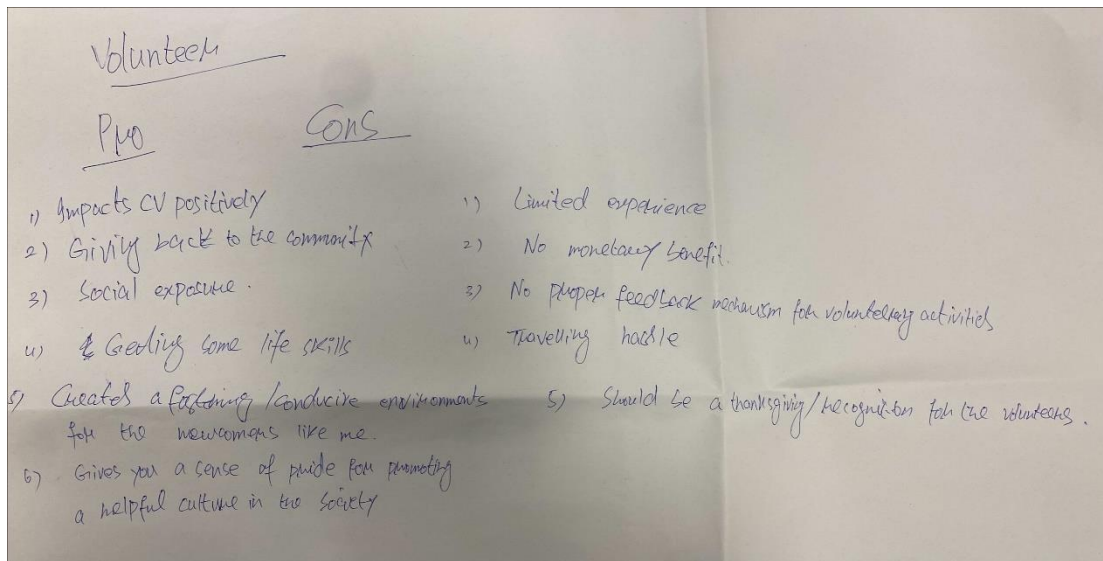 Volunteer
Pro
Cons
1) Impacts CV positively
2) Giving back to the community
3) Social exposure.
4) Getting some life skills
5) Creates a fostering / conducive environments
for the newcomers like me.
6) Gives you a sense of pride for promoting
a helpful culture in the society
1) Limited experience
2) No monetary benefit.
3) No proper feedback mechanism for volunteering activities
4) Travelling hassle
5) Should be a thanksgiving/recognition for the volunteers.